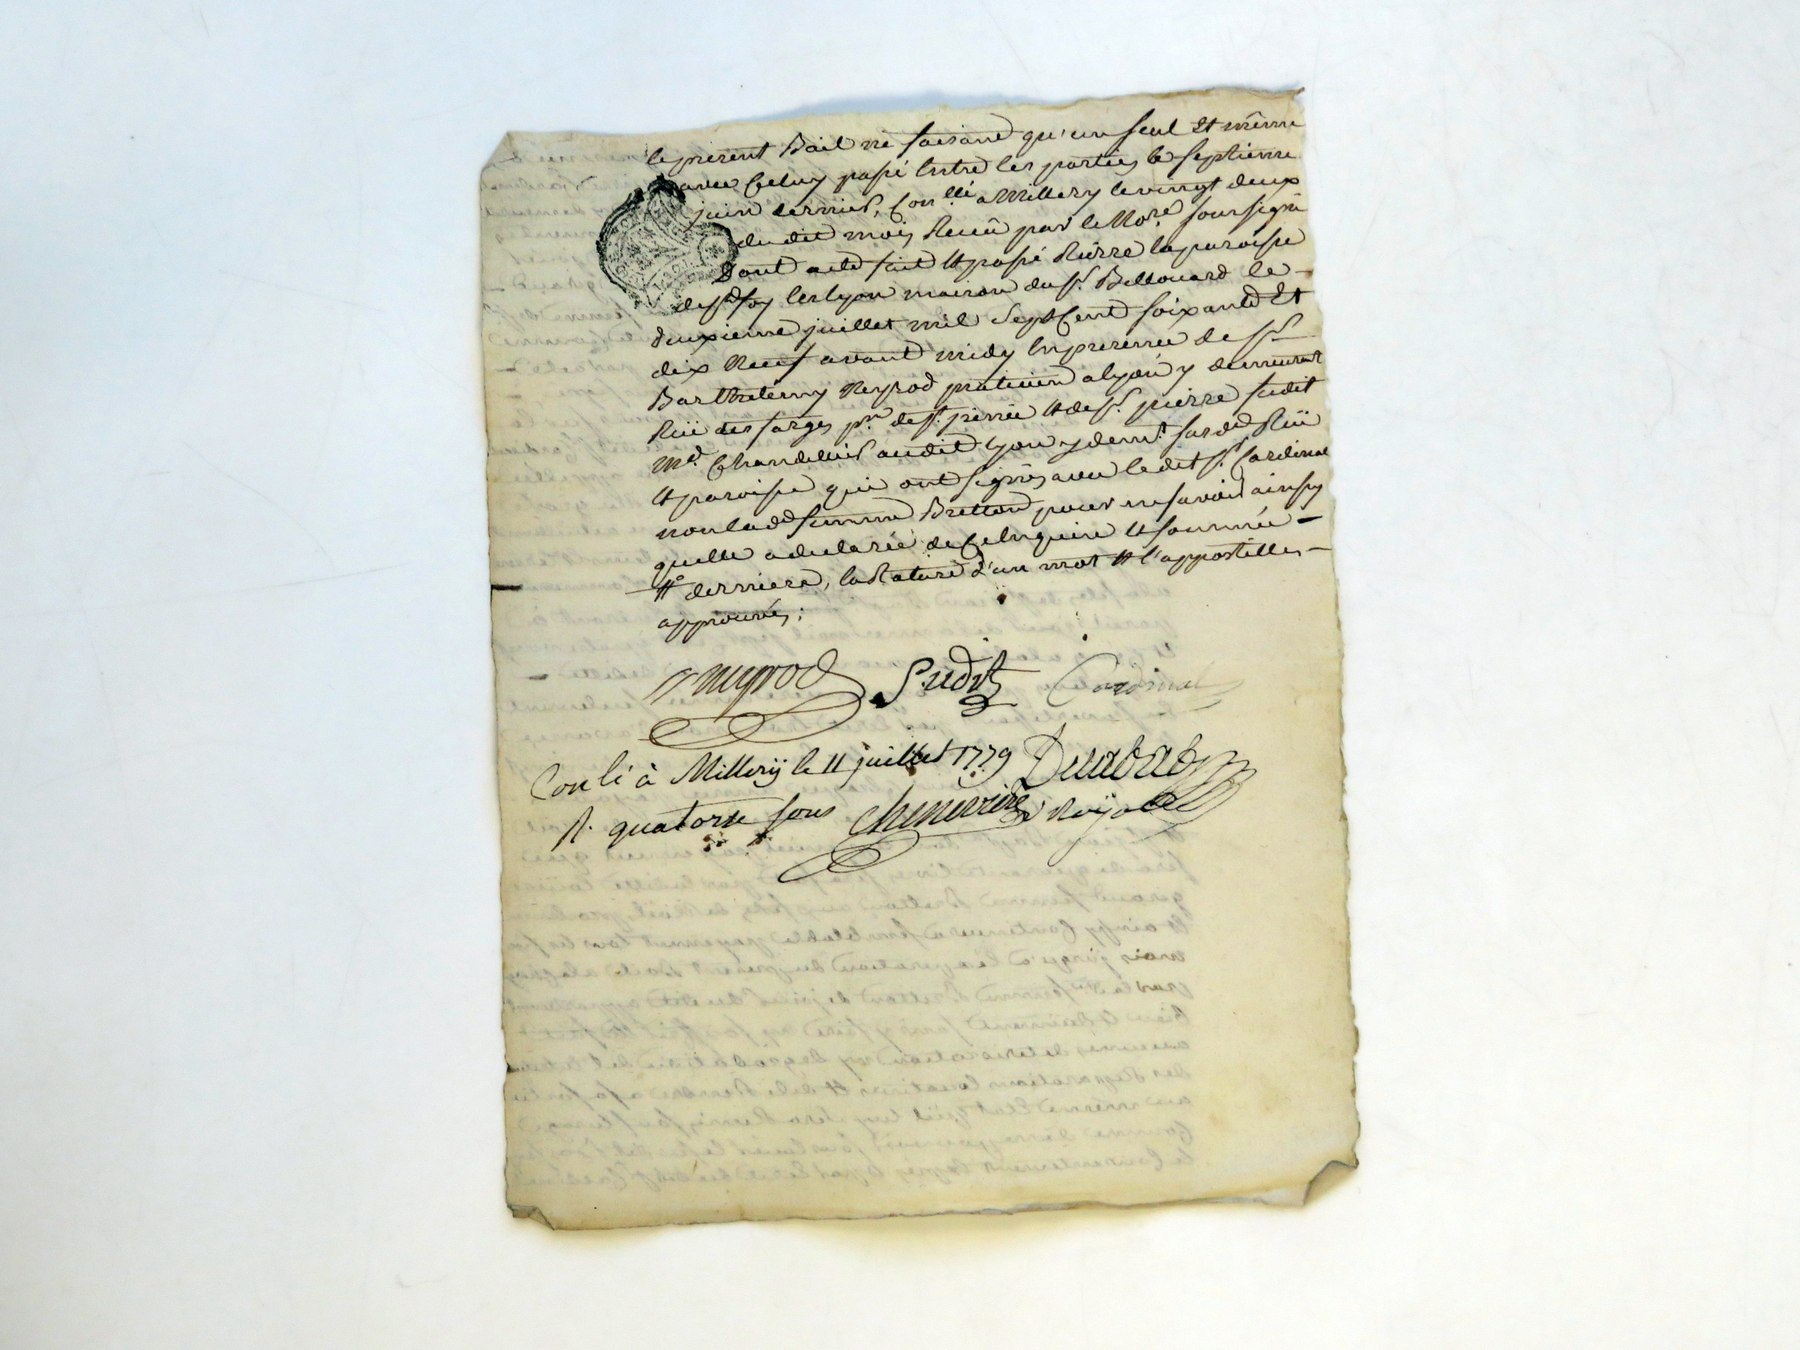 le present Bail ne faisant qu'un seul Et même
avec Celuy passé Entre les parties le septieme
juin dernier, Con.llé a Millery le vingt deux
du dit mois Recû par le No.re soussigné
Dont acte fait Et passé Riërre la paroisse
de S.te foy les lyon maison du S.r Bellouard le
deuxieme juillet mil Sept Cent soixante Et
dix Neuf avant midy En presence de S.r
Barthelemy Neyrod praticien a lyon y demeurant
Rüe des farges p.sse de S.t jrénée Et de S.r pierre Sudit
m.d Chandelier audit lyon y dem.t susd.e Rüe
Et paroisse qui ont signés avec le dit S.r Cardinal
non lad.e femme Bretton pour ne savoir ainsy
quelle a declarée de Ce Enquise Et sommée
Et derniere, la Rature d'un mot Et l'appostilles
approuvés;
Neyrod Sudit Cardinal
Con.lé à Millerÿ le 11 juillet 1779
R. quatorze sous Chenevière Noÿ